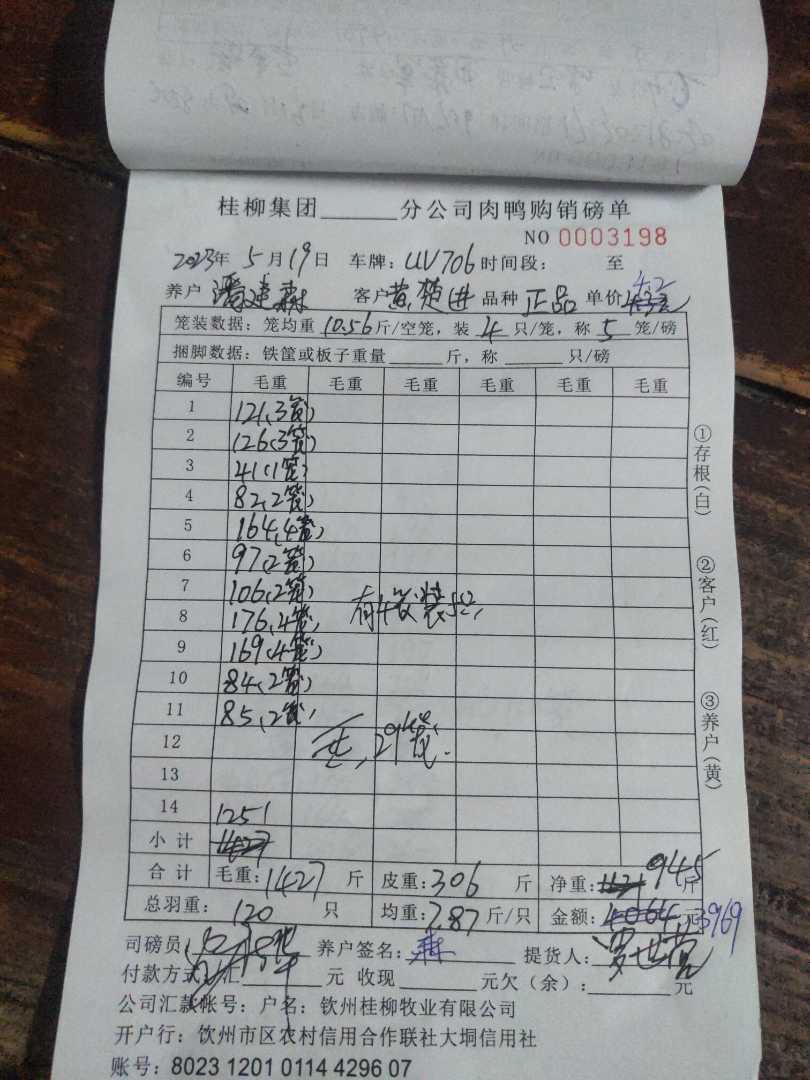 桂柳集团______分公司肉鸭购销磅单
NO 0003198
2023年 5月19日 车牌：UV706 时间段： 至
养户 潘建森 客户 黄楚进 品种 正品 单价 4.2
笼装数据：笼均重 10.56 斤/空笼，装 4 只/笼，称 5 笼/磅
捆脚数据：铁筐或板子重量______斤，称______只/磅
编号 毛重 毛重 毛重 毛重 毛重 毛重
1 121(3笼)
2 126(3笼)
3 41(1笼)
4 82(2笼)
5 164(4笼)
6 97(2笼)
7 106(2笼)
8 176(4笼)
9 169(4笼)
10 84(2笼)
11 85(2笼)
12
13
14 1251
小计
有4笼装5只
共29笼.
合计 毛重：1427 斤 皮重：306 斤 净重：945斤
总羽重：120 只 均重：7.87斤/只 金额：4064元3969
司磅员： 养户签名：森 提货人：罗世
付款方式：汇______元 收现______元欠（余）：______元
公司汇款帐号：户名：钦州桂柳牧业有限公司
开户行：钦州市区农村信用合作联社大垌信用社
账号：8023 1201 0114 4296 07
①存根(白)
②客户(红)
③养户(黄)